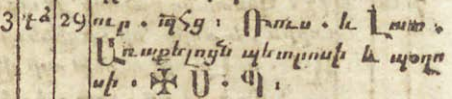 3 դճ 29 ուր • պհց ։ Յուս • և Հատ •
Առաքելոցն պետրոսի և պօղո
սի • ✠ Ս • Գ ։